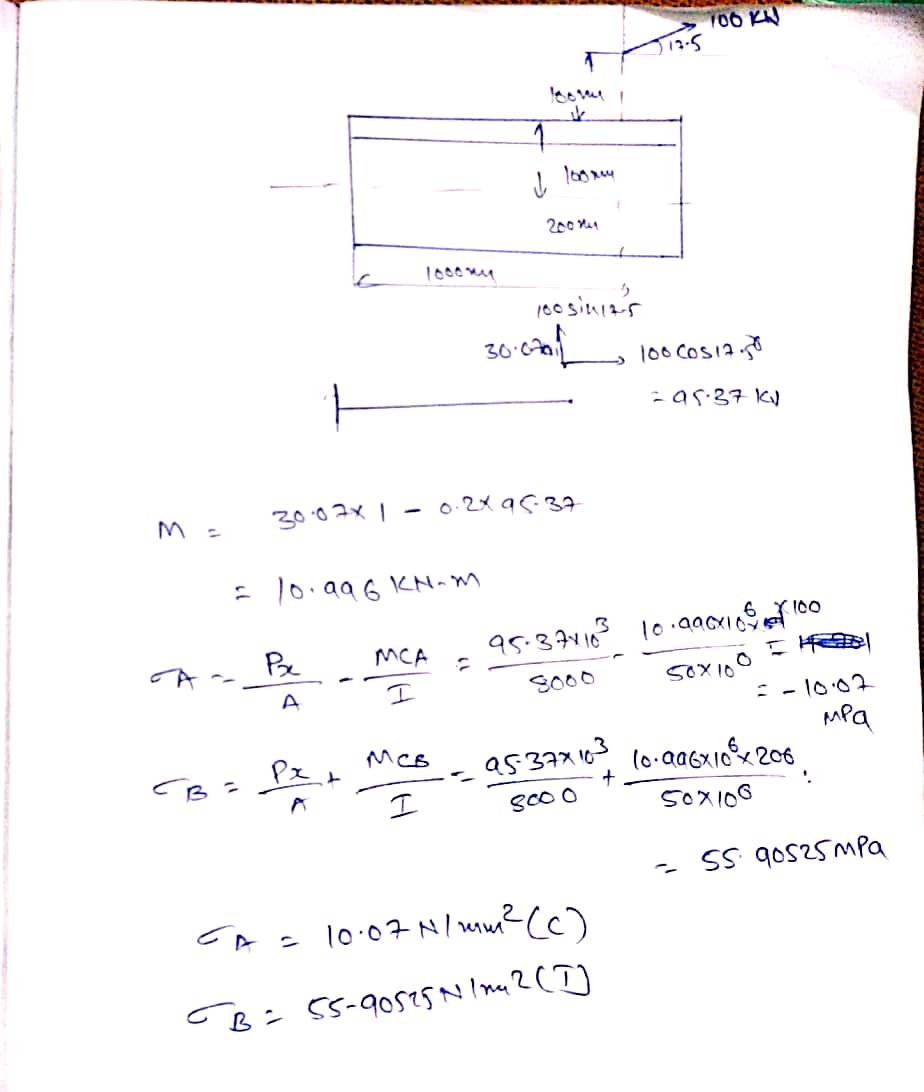 100 KN
17.5
100mm
100mm
200mm
1000mm
100 sin 17.5
30.070
100 cos 17.5°
= 95.37 KN
M = 30.07 x 1 - 0.2 x 95.37
= 10.996 KN-m
σA = Px/A - MCA/I = 95.37x10³/8000 - 10.996x10⁶x100/50x10⁶ =
= -10.07 MPa
σB = Px/A + MCB/I = 95.37x10³/8000 + 10.996x10⁶x200/50x10⁶
= 55.90525 MPa
σA = 10.07 N/mm² (C)
σB = 55.90525 N/mm2 (T)